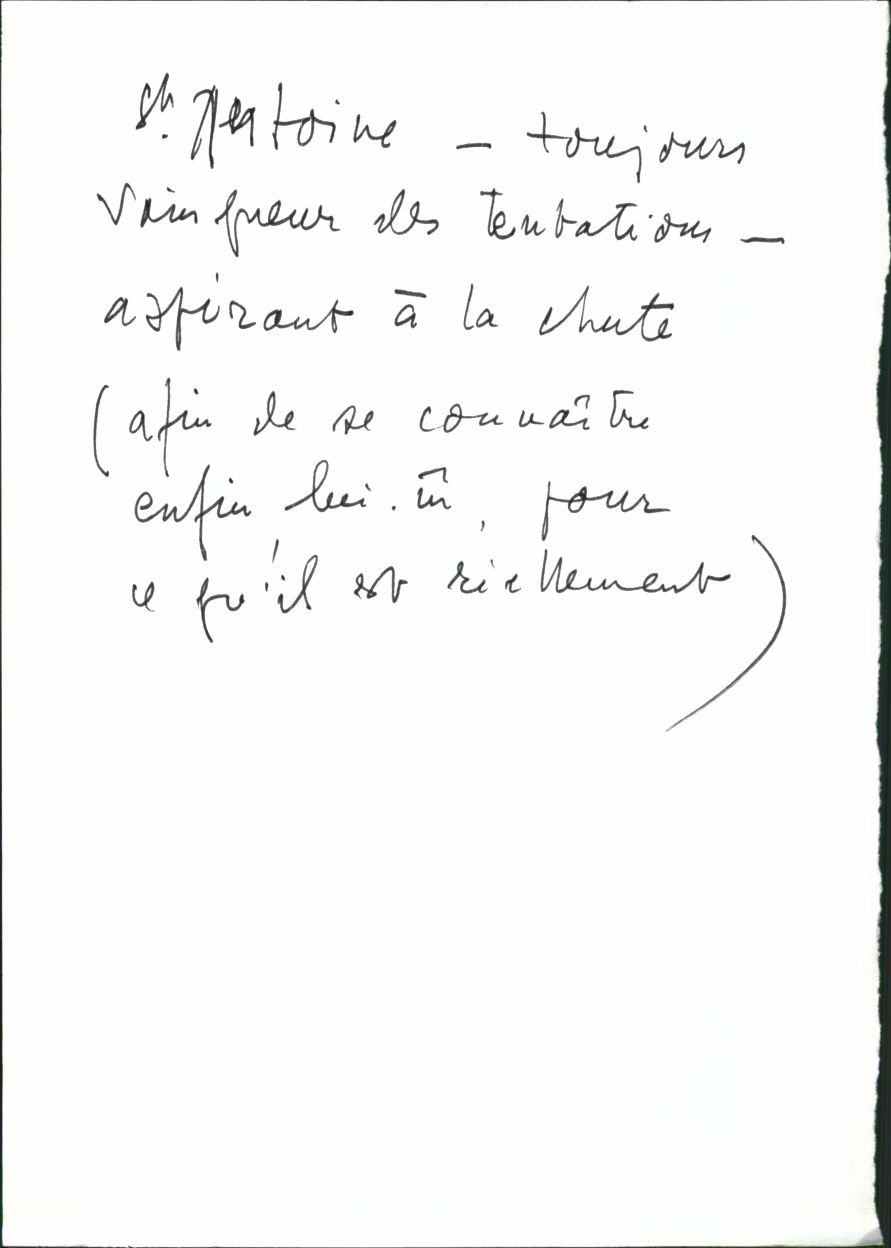 St. Antoine – toujours
vainqueur des tentations –
aspirant à la chute
(afin de se connaître
enfin lui-m̂, pour
ce qu'il est réellement)